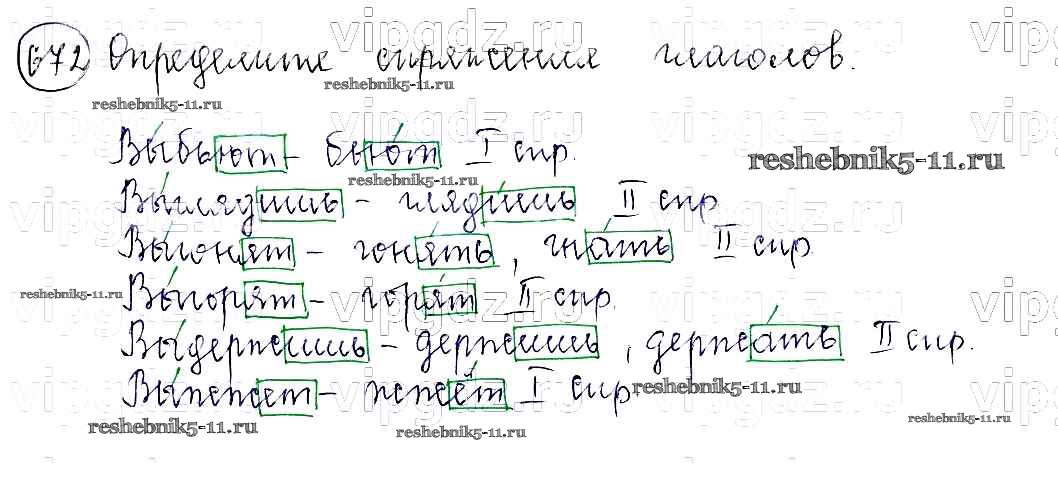 672 Определите спряжения глаголов.
Выбьют - бьют I спр.
Выглядишь - глядишь II спр
Выгонят - гонять, гнать II спр.
Выгорят - горят II спр.
Выдержишь - держишь, держать II спр.
Выжжет - жжёт I спр.
reshebnik5-11.ru
reshebnik5-11.ru
reshebnik5-11.ru
reshebnik5-11.ru
reshebnik5-11.ru
reshebnik5-11.ru
reshebnik5-11.ru
reshebnik5-11.ru
reshebnik5-11.ru